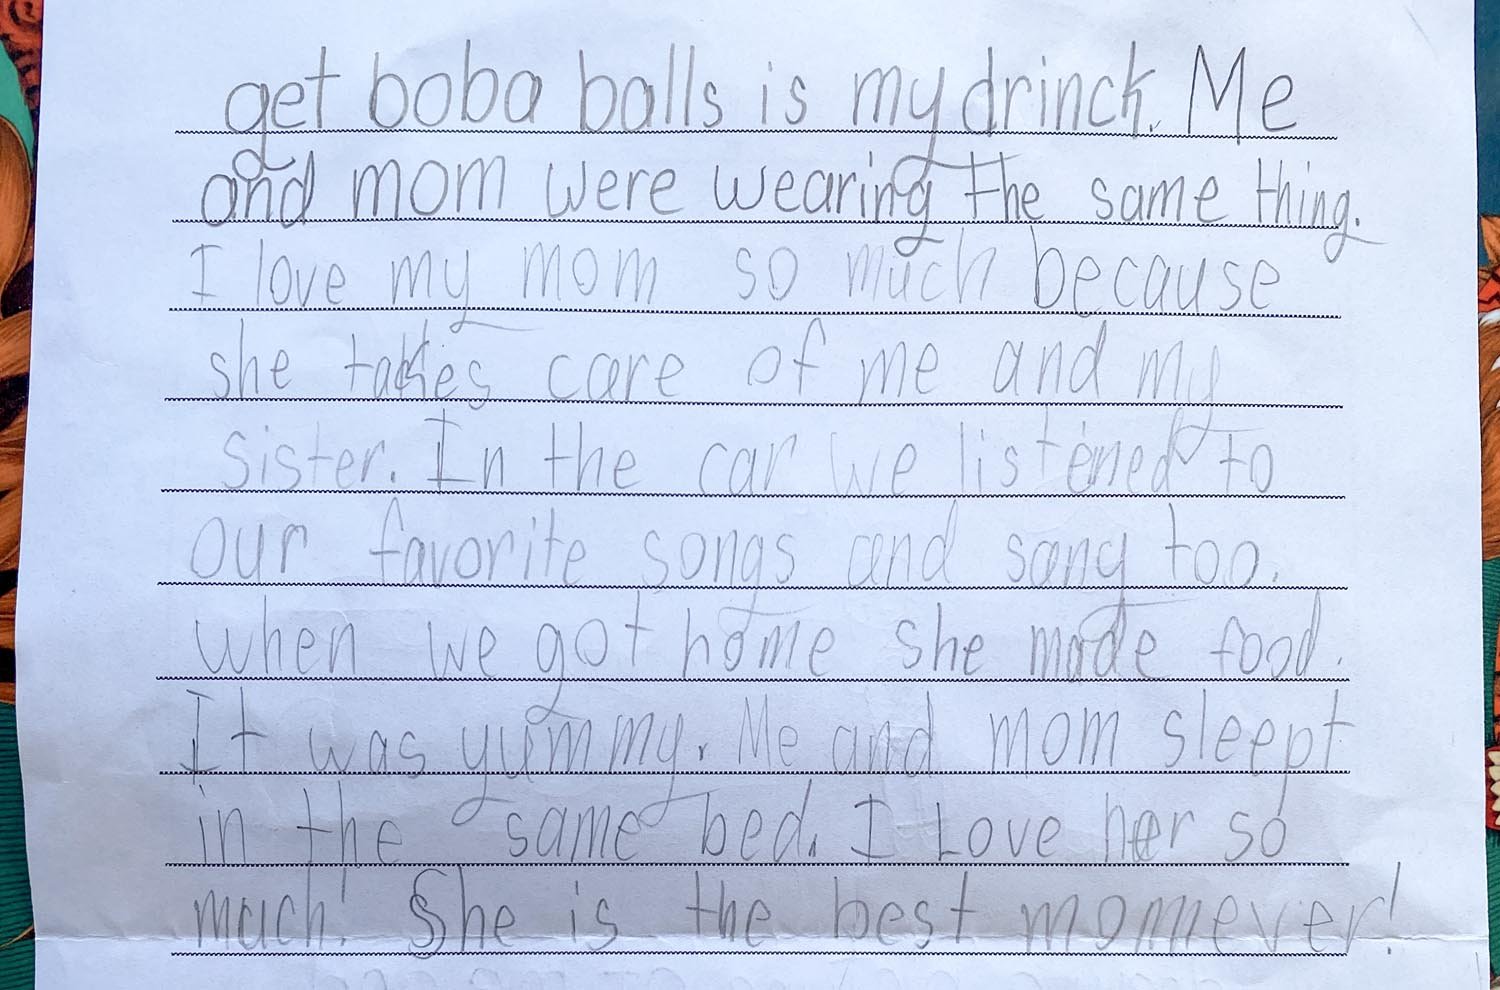 get boba balls is my drinck. Me
and mom were wearing the same thing.
I love my mom so much because
she takes care of me and my
sister. In the car we listened to
our favorite songs and sang too.
when we got home she made food.
It was yummy. Me and mom sleept
in the same bed. I Love her so
much! She is the best mom ever!